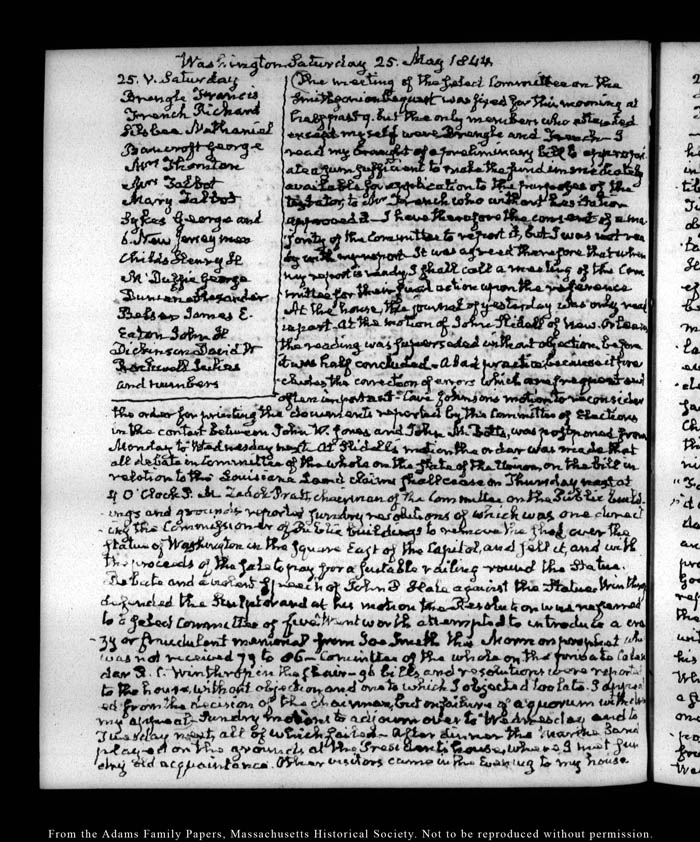 Washington Saturday 25. May 1844
25. V. Saturday
Brengle Francis
French Richard
Silsbee Nathaniel
Bancroft George
Mrs Thornton
Mrs Talbot
Mary Talbot
Sykes George and
6. New Jersey men
Childs Henry H
McDuffie George
Duncan Alexander
Belser James E.
Eaton John H
Dickinson David W
Rockwell Julius
and numbers
The meeting of the Select Committee on the
Smithsonian bequest was fixed for this morning at
half past 9. but the only members who attended
except myself were Brengle and French – I
read my draught of a preliminary bill to appropri-
ate a sum sufficient to make the fund immediately
available for application to the purposes of the
testator, to Mr French who without hesitation
approved it – I have therefore the consent of a ma-
jority of the Committee to report it, but I was not rea-
dy with my report. It was agreed therefore that when
my report is ready I shall call a meeting of the Com-
mittee for their final action upon the reference
At the house, the journal of yesterday was only read
in part. At the motion of John Slidell of New Orleans
the reading was superseded without objection before
it was half concluded – A bad practice, because it pre-
cludes the correction of errors which are frequent and
often important. Cave Johnson's motion to reconsider
the order for printing the documents reported by the Committee of Elections
in the contest between John W. Jones and John M. Botts, was postponed from
Monday to Wednesday next. At Slidell's motion the order was made that
all debate in Committee of the whole on the State of the Union, on the bill in
relation to the Louisiana Land claims shall cease on Thursday next at
O'Clock P. M. Zadok Pratt chairman of the Committee on the Public build-
ings and grounds reported sundry resolutions of which was one direct-
ing the Commissioner of Public buildings to remove the shed over the
statue of Washington in the square East of the Capitol, and sell it, and with
the proceeds of the sale to pay for a suitable railing round the Statue.
Debate and a violent speech of John P Hale against the Statue. Winthrop
defended the Sculptor and at his motion the Resolution was referred
to a select Committee of five. Wentworth attempted to introduce a cra-
zy or fraudulent memorial from Joe Smith the Mormon prophet who
was not received 79 to 86 – Committee of the whole on the private Calen
dar R. C. Winthrop in the chair – 96 bills and resolutions were reported
to the house, without objection and one to which I objected too late. I appeal-
ed from the decision of the chairman, but on failure of a quorum withdrew
my appeal. Sundry motions to adjourn over to Wednesday and to
Tuesday next, all of which failed – After dinner the Marine Band
played on the grounds at the President's house, where I met sun-
dry old acquaintance. Other visitors came in the Evening to my house
From the Adams Family Papers, Massachusetts Historical Society. Not to be reproduced without permission.